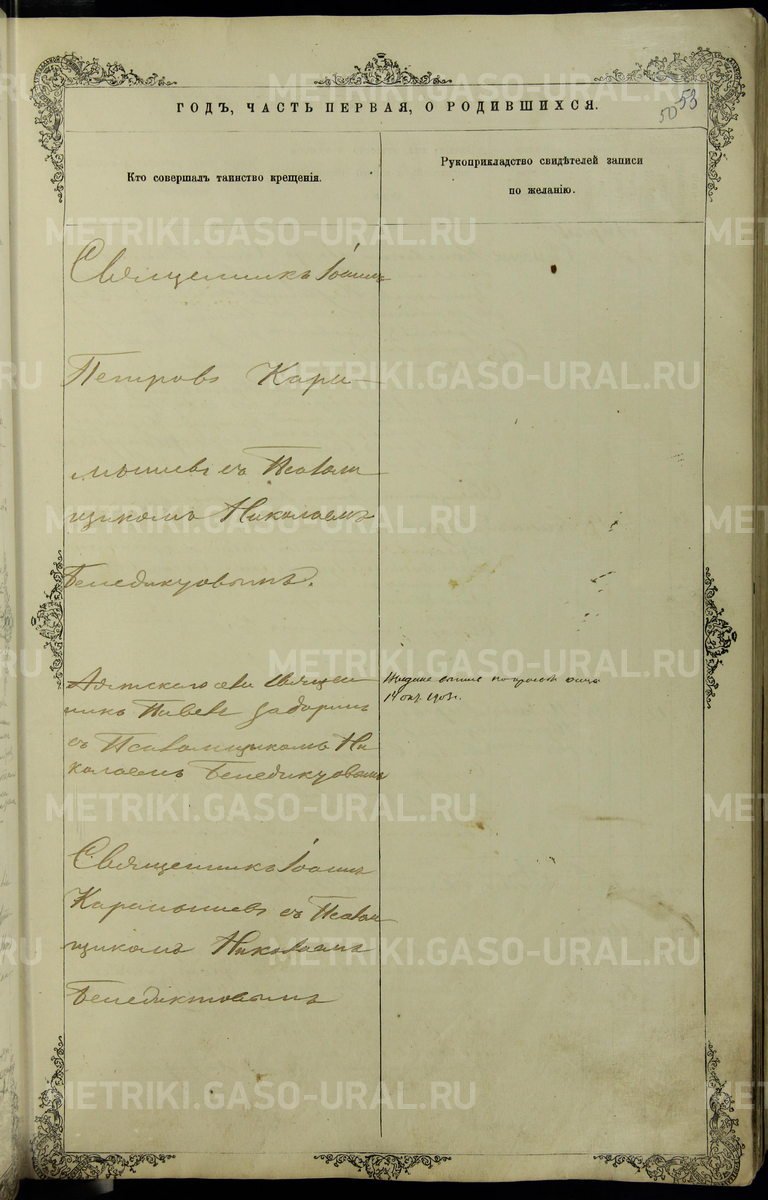 ГОДЪ, ЧАСТЬ ПЕРВАЯ, О РОДИВШИХСЯ.
50 53
Кто совершалъ таинство крещенія.
Рукоприкладство свидѣтелей записи
по желанію.
Священникъ Іоаннъ
Петровъ Кара-
мышевъ съ Псалом
щикомъ Николаемъ
Бенедиктовымъ.
Аятскаго села Священ
никъ Павелъ
съ Псаломщикомъ Ни
колаемъ Бенедиктовымъ
14 окт. 1903 г.
Священникъ Іоаннъ
Карамышевъ съ Псалом
щикомъ Николаемъ
Бенедиктовымъ
METRIKI.GASO-URAL.RU